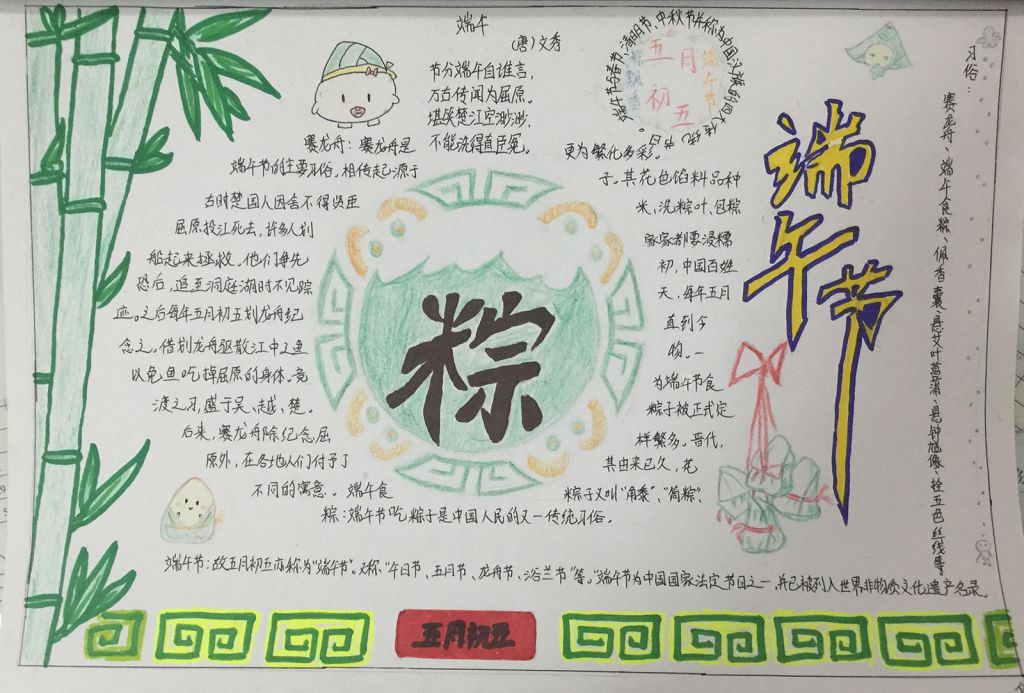 端午
(唐)文秀
节分端午自谁言,
万古传闻为屈原。
堪笑楚江空渺渺,
不能洗得直臣冤。
端午节与春节、清明节、中秋节并称为中国汉族的四大传统节日
五月
初五
粽飘香
端午节
端午节
习俗:
赛龙舟、端午食粽、佩香囊、悬艾叶菖蒲、悬钟馗像、拴五色丝线等
赛龙舟:赛龙舟是
端午节的主要习俗。相传起源于
古时楚国人因舍不得贤臣
屈原投江死去,许多人划
船起来拯救。他们争先
恐后,追至洞庭湖时不见踪
迹。之后每年五月初五划龙舟纪
念之。借划龙舟驱散江中之鱼
以免鱼吃掉屈原的身体。竞
渡之习,盛于吴、越、楚。
后来,赛龙舟除纪念屈
原外,在各地人们付予了
不同的寓意。端午食
粽:端午节吃粽子是中国人民的又一传统习俗。
粽子又叫“角黍”、“筒粽”、
其由来已久,花
样繁多。晋代,
粽子被正式定
为端午节食
物。一
直到今
天,每年五月
初,中国百姓
家家都要浸糯
米、洗粽叶、包粽
子,其花色馅料品种
更为繁化多彩。
粽
端午节:故五月初五亦称为“端午节”。又称“午日节、五月节、龙舟节、浴兰节”等。“端午节为中国国家法定节日之一,并已被列入世界非物质文化遗产名录。
五月初五